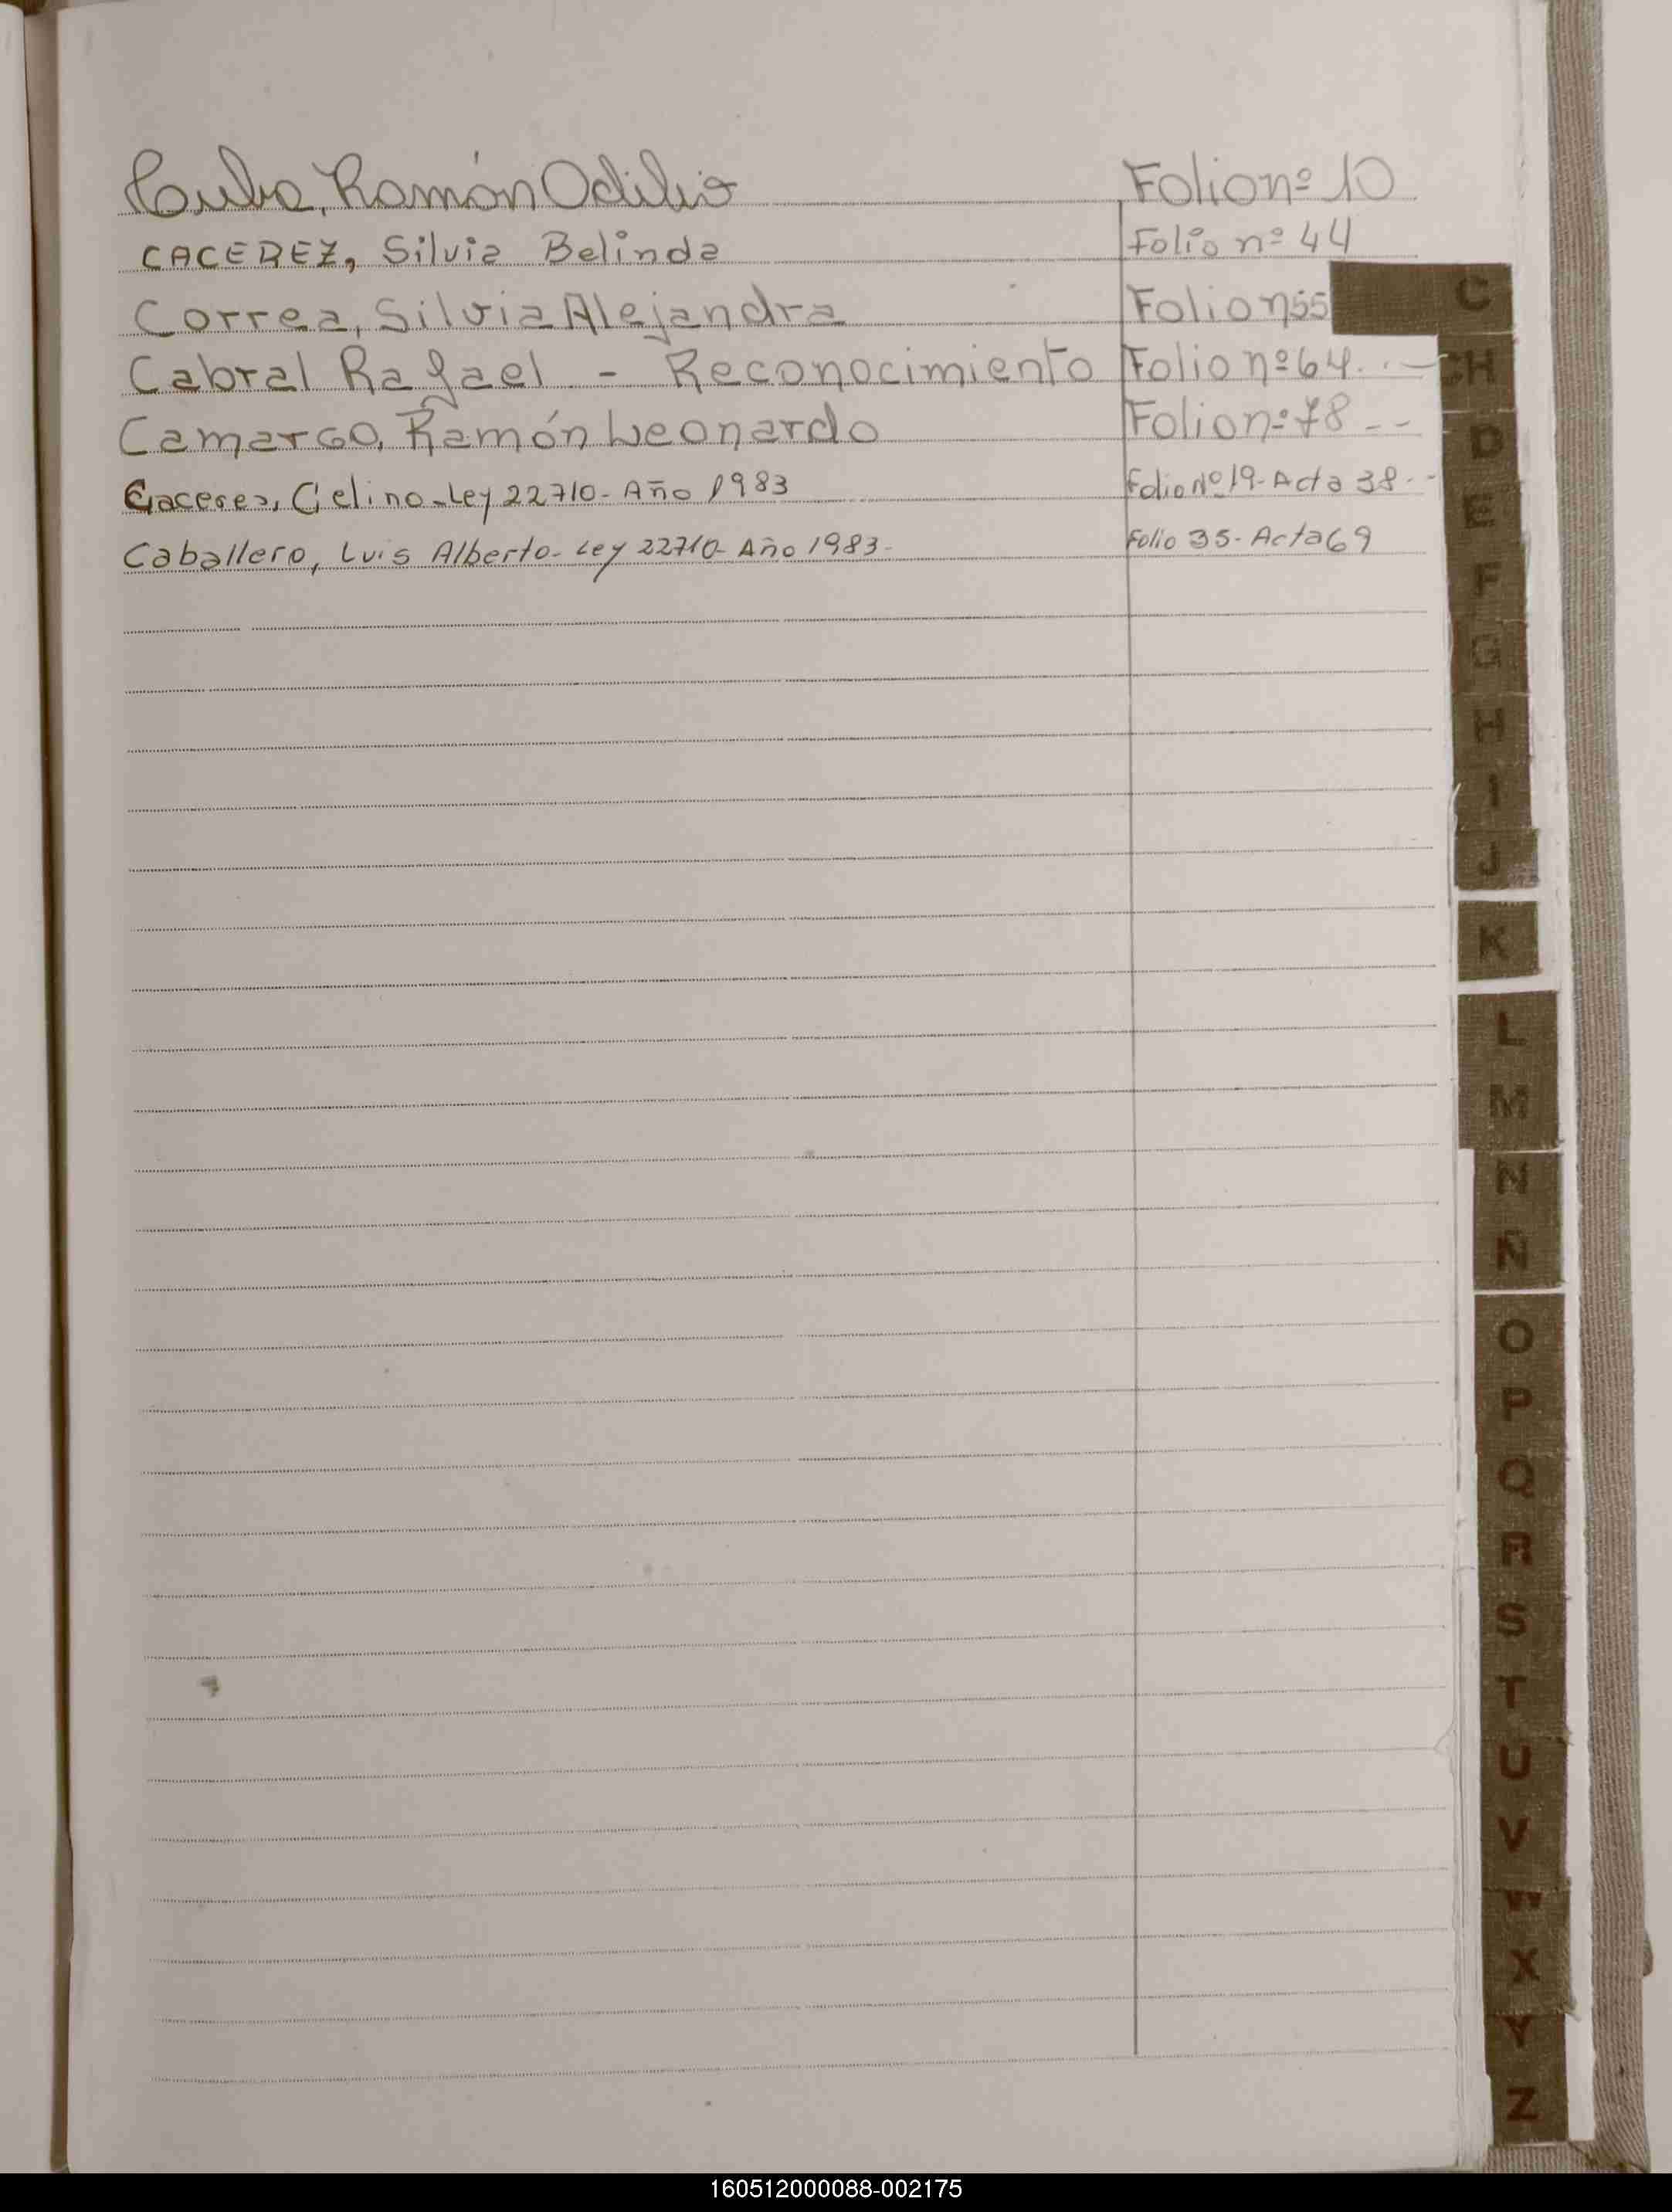 Cuba, Ramón Odilio Folio nº 10
CACEREZ, Silvia Belinda Folio nº 44
Correa, Silvia Alejandra Folio n55
Cabral Rafael - Reconocimiento Folio nº 64. . -
Camargo, Ramón Leonardo Folio nº 78 - -
Caceres, Celino - Ley 22710 - Año 1983 Folio Nº 19 - Acta 38 - -
Caballero, Luis Alberto - Ley 22710 - Año 1983 - Folio 35 - Acta 69
C
CH
D
E
F
G
H
I
J
K
L
M
N
Ñ
O
P
Q
R
S
T
U
V
W
X
Y
Z
160512000088-002175